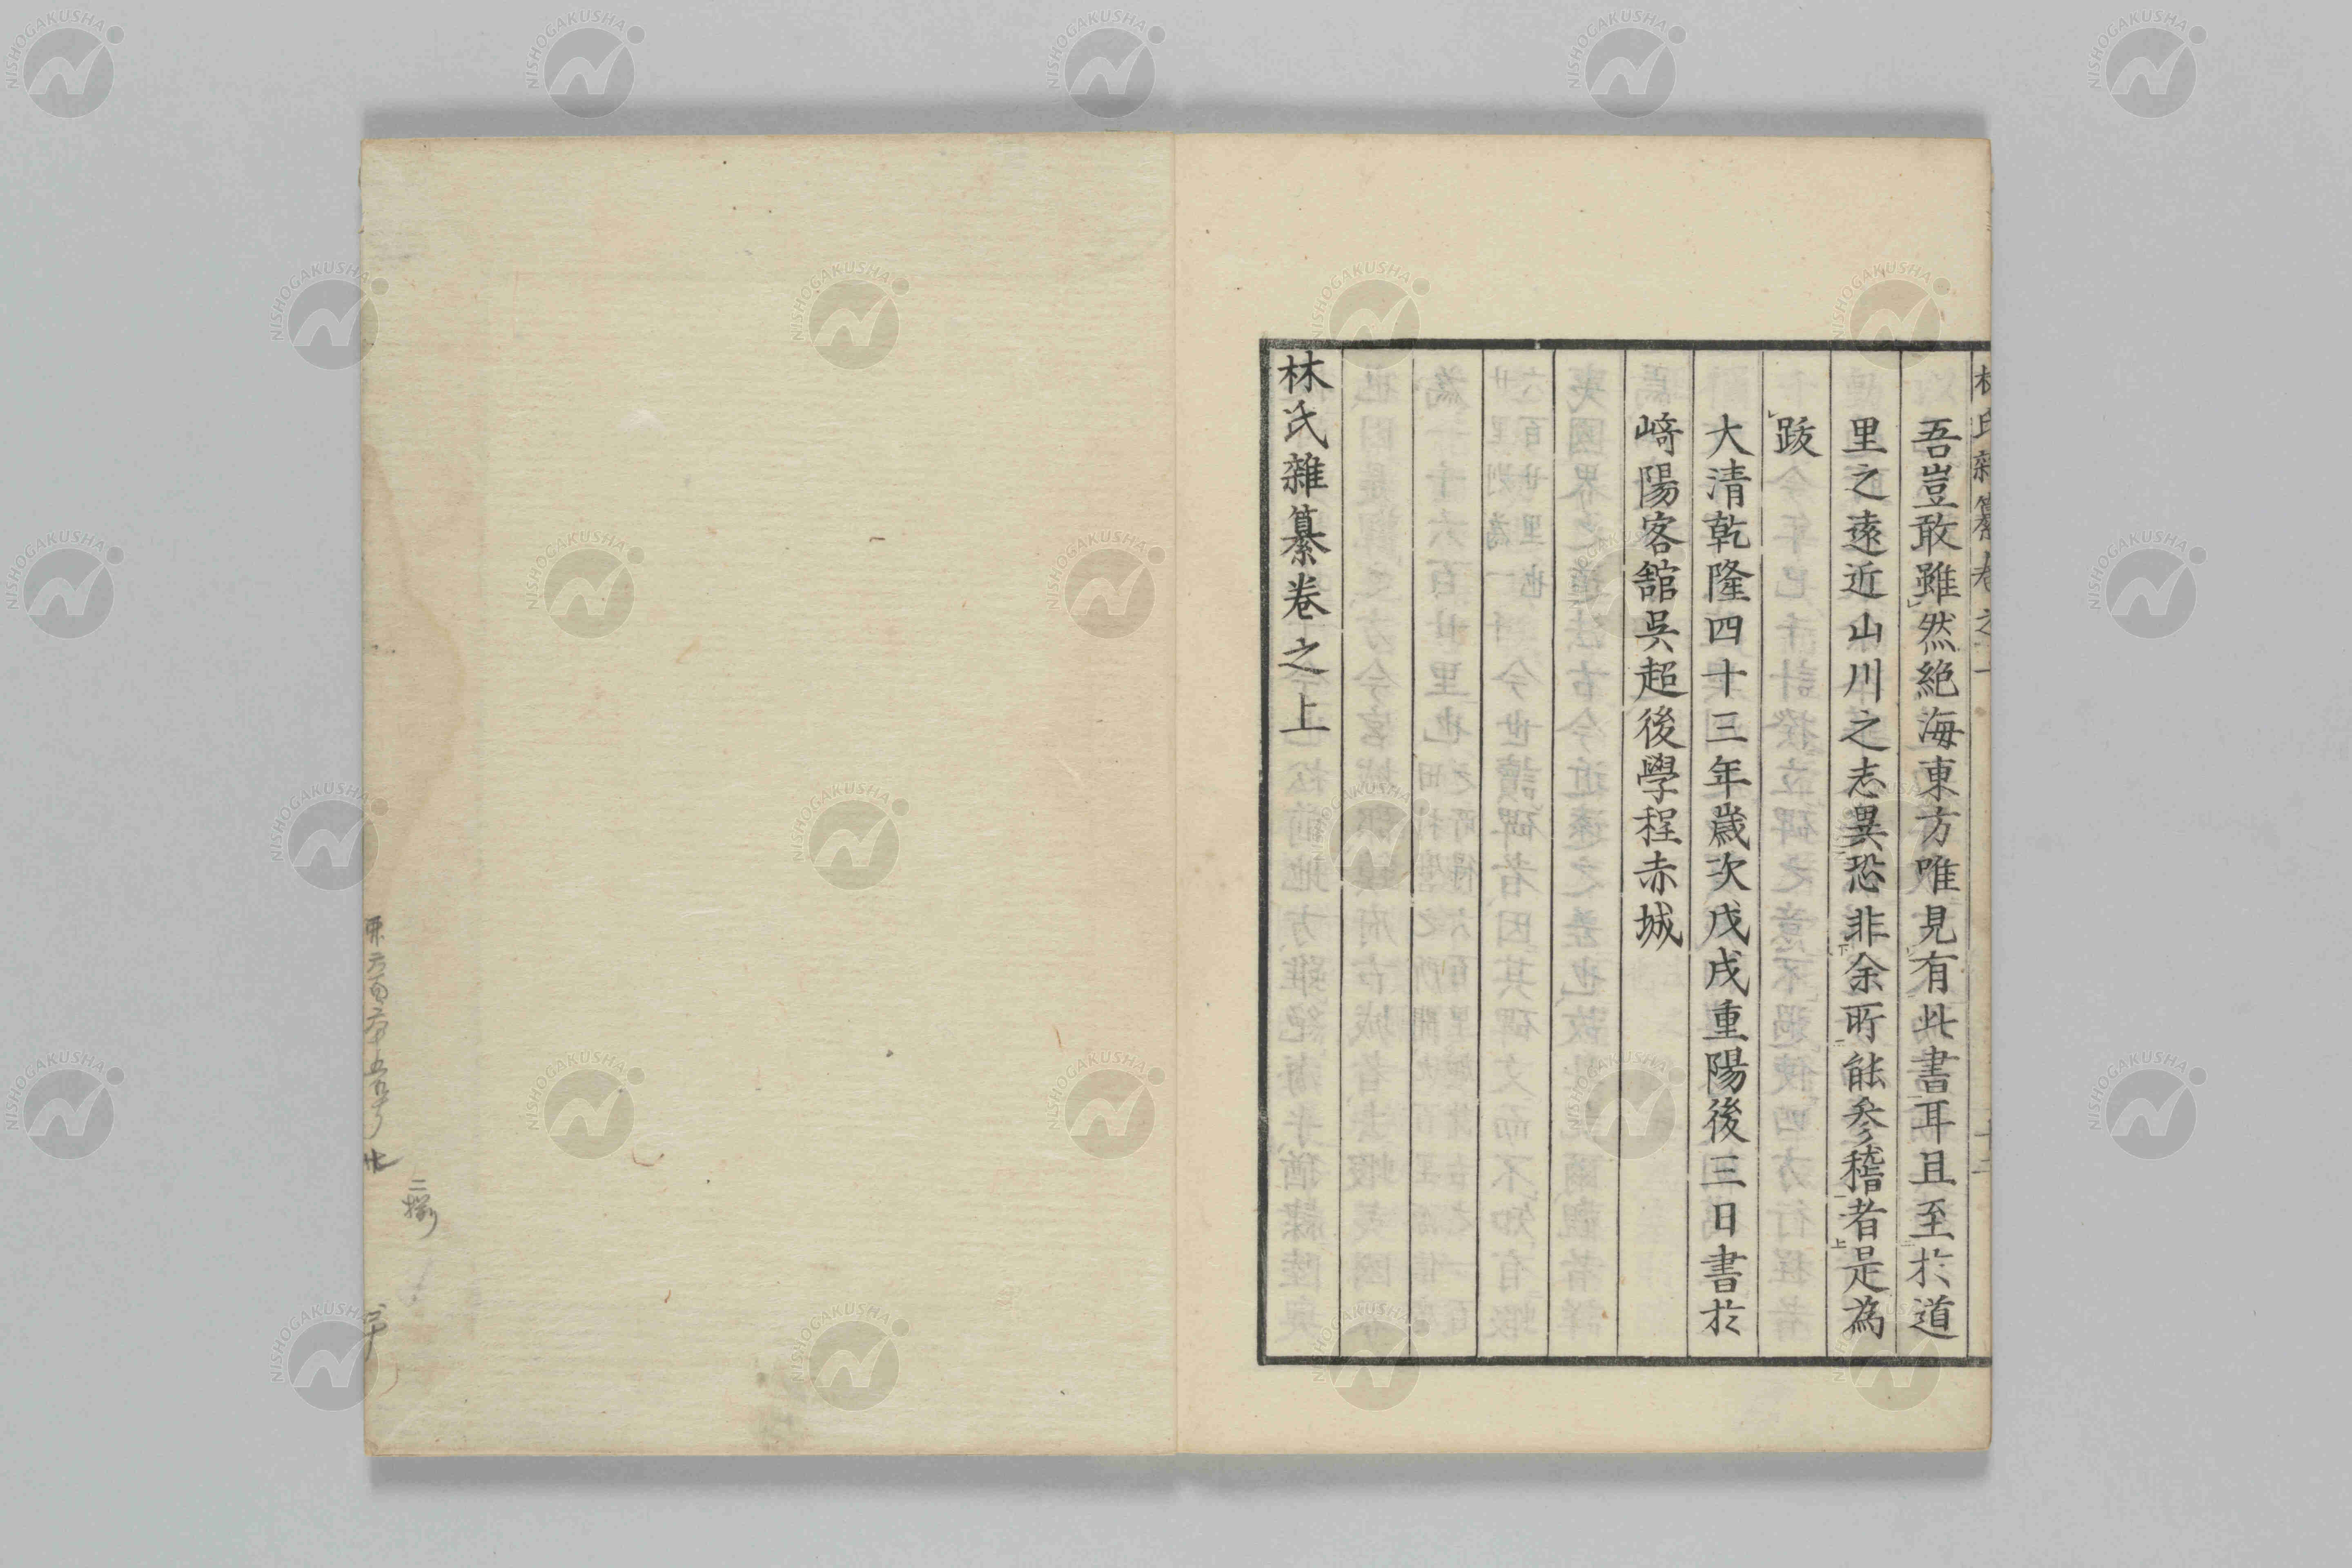 吾豈敢雖然絶海東方唯見有此書耳且至於道
里之遠近山川之志異恐非余所能参稽者是為
跋
大清乾隆四十三年歳次戊戌重陽後三日書於
﨑陽客舘呉超後學程赤城
林氏雜纂卷之上
NISHOGAKUSHA